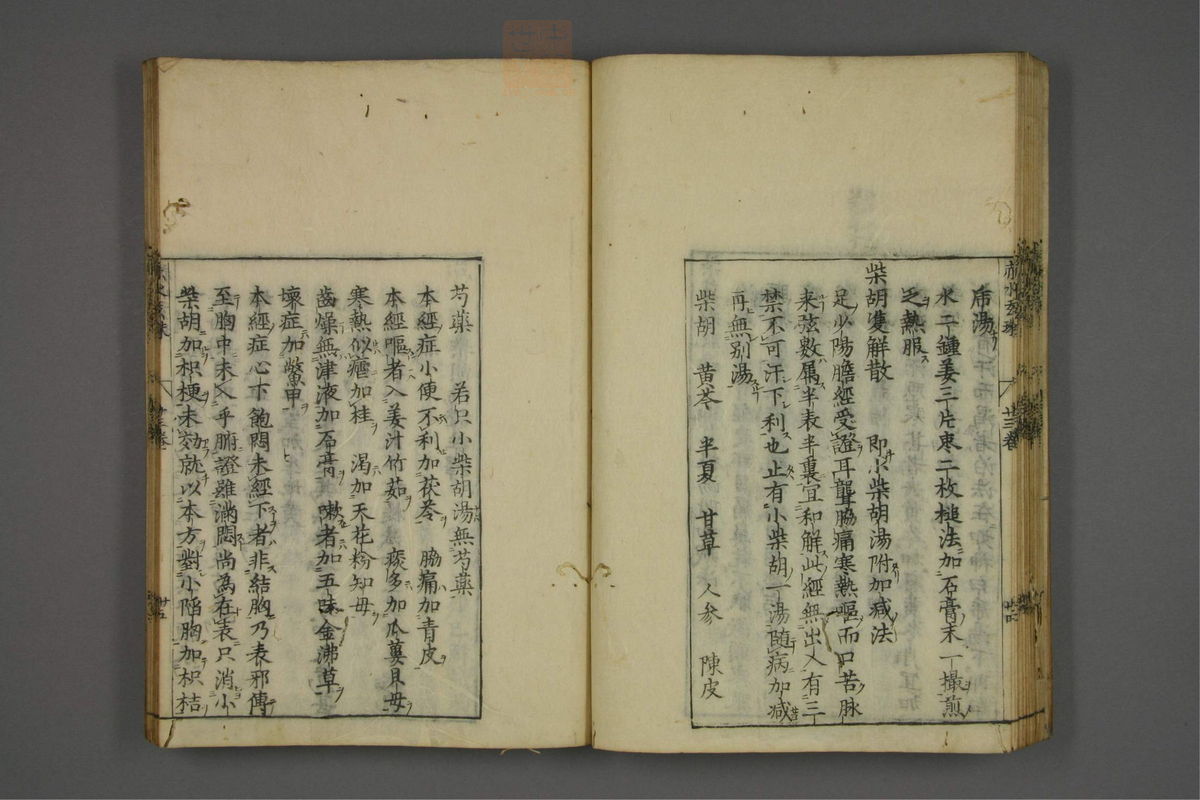 帍湯
水二鍾姜三片枣二枚槌法加石膏末一撮煎
之熱服
柴胡雙解散　即小柴胡湯附加减法
足少陽膽經受證耳聾脇痛寒熱嘔而口苦脉
来弦數属半表半裏宜和解此經無出入有三
禁不可汗下利也止有小柴胡一湯随病加减
再無别湯
柴胡　黄芩　半夏　甘草　人参　陳皮
芍藥　若只小柴胡湯無芍藥
本經症小便不利加茯苓　脇痛加青皮
本經嘔者入姜汁竹茹　痰多加瓜蔞貝母
寒熱似瘧加桂　渴加天花粉知母
齒燥無津液加石膏　嗽者加五味金沸草
壞症加鱉甲
本經症心下飽悶未經下者非結胸乃表邪傳
至胸中未入乎腑證雖滿悶尚為在表只消小
柴胡加枳梗未効就以本方對小陥胸加枳桔